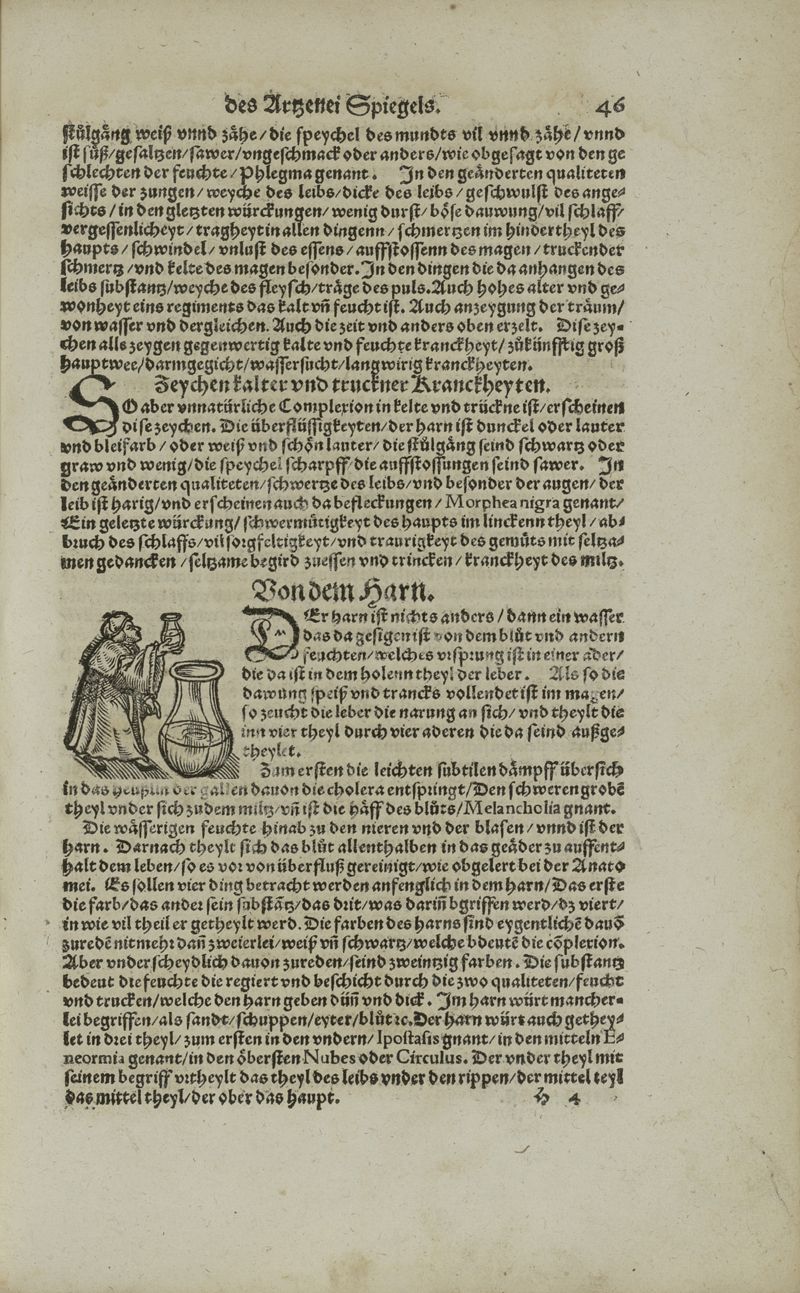 des Artzenei Spiegels. 46
stůlgång weiß vnnd zähe/die speychel des mundts vil vnnd zähe/vnnd
ist süß/gesaltzen/sawer/vngeschmack oder anders/wie obgesagt von den ge
schlechten der feuchte/Phlegma genant. In den geänderten qualiteten
weisse der zungen/weyche des leibs/dicke des leibs/geschwulst des ange⸗
sichts/in den gletzten würckungen/wenig durst/böse dauwung/vil schlaff/
vergessenlicheyt/tragheyt in allen dingenn/schmertzen im hindertheyl des
haupts/schwindel/vnlust des essens/auffstossenn des magen/truckender
schmertz/vnd kelte des magen besonder. In den dingen die da anhangen des
leibs substantz/weyche des fleysch/träge des puls. Auch hohes alter vnd ge⸗
wonheyt eins regiments das kalt vñ feucht ist. Auch anzeygung der träum/
von wasser vnd dergleichen. Auch die zeit vnd anders oben erzelt. Dise zey⸗
chen alls zeygen gegenwertig kalte vnd feuchte kranckheyt/zůkünfftig groß
hauptwee/darmgegicht/wassersucht/langwirig kranckheyten.
Zeychen kalter vnd truckner Kranckheyten.
SO aber vnnatürliche Complexion in kelte vnd trückne ist/erscheinen
dise zeychen. Die überflüssigkeyten/der harn ist dunckel oder lauter
vnd bleifarb/oder weiß vnd schön lauter/die stůlgång seind schwartz oder
graw vnd wenig/die speychel scharpff/die auffstossungen seind sawer. In
den geänderten qualiteten/schwertze des leibs/vnd besonder der augen/der
leib ist harig/vnd erscheinen auch da befleckungen/Morphea nigra genant/
Ein geletzte würckung/schwermůtigkeyt des haupts im linckenn theyl/ab⸗
bruch des schlaffs/vil sorgfeltigkeyt/vnd traurigkeyt des gemůts mit seltza⸗
men gedancken/seltzame begird zuessen vnd trincken/kranckheyt des miltz.
Von dem Harn.
DEr harn ist nichts anders/dann ein wasser
das da gesigen ist von dem blůt vnd andern
feuchten/welches vrsprung ist in einer ader/
die da ist in dem holenn theyl der leber. Als so die
dawung speiß vnd trancks vollendet ist im magen/
so zeucht die leber die narung an sich/vnd theylt die
inn vier theyl durch vier aderen die da seind außge⸗
theylet.
Zum ersten die leichten subtilen dämpff übersich
in das heußlin der gallen dauon die cholera entspringt/Den schweren grobē
theyl vnder sich zu dem miltz/vñ ist die häff des blůts/Melancholia gnant.
Die wässerigen feuchte hinab zu den nieren vnd der blasen/vnnd ist der
harn. Darnach theylt sich das blůt allenthalben in das geäder zu auffent⸗
halt dem leben/so es vor von überfluß gereinigt/wie obgelert bei der Anato
mei. Es sollen vier ding betracht werden anfenglich in dem harn/Das erste
die farb/das ander sein substätz/das drit/was darin̄ bgriffen werd/dz viert/
in wie vil theil er getheylt werd. Die farben des harns sind eygentlichē dauō
zuredē nit mehr dañ zweierlei/weiß vñ schwartz/welche bdeutē die cōplexion.
Aber vnderscheydlich dauon zureden/seind zweintzig farben. Die substantz
bedeut die feuchte die regiert vnd beschicht durch die zwo qualiteten/feucht
vnd trucken/welche den harn geben dün̄ vnd dick. Im harn würt mancher⸗
lei begriffen/als sandt/schuppen/eyter/blůt ꝛc. Der harn würt auch gethey⸗
let in drei theyl/zum ersten in den vndern/Ipostasis gnant/in den mitteln E⸗
neormia genant/in den öbersten Nubes oder Circulus. Der vnder theyl mit
seinem begriff vrtheylt das theyl des leibs vnder den rippen/der mittel teyl
das mittel theyl/der ober das haupt. H 4